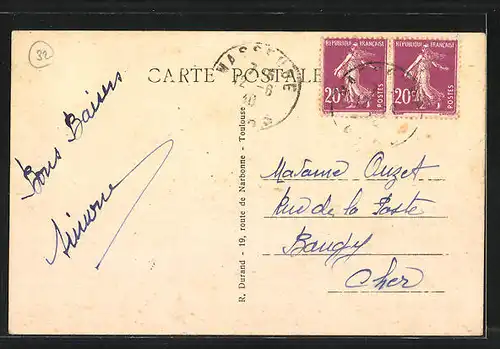 32
CARTE POSTALE
MASSEUBE
RÉPUBLIQUE FRANÇAISE
20c
POSTES
RÉPUBLIQUE FRANÇAISE
20c
POSTES
Bons Baisers
Simone
R. Durand - 19, route de Narbonne - Toulouse
Madame Ouzet
Rue de la Poste
Baugy
Cher